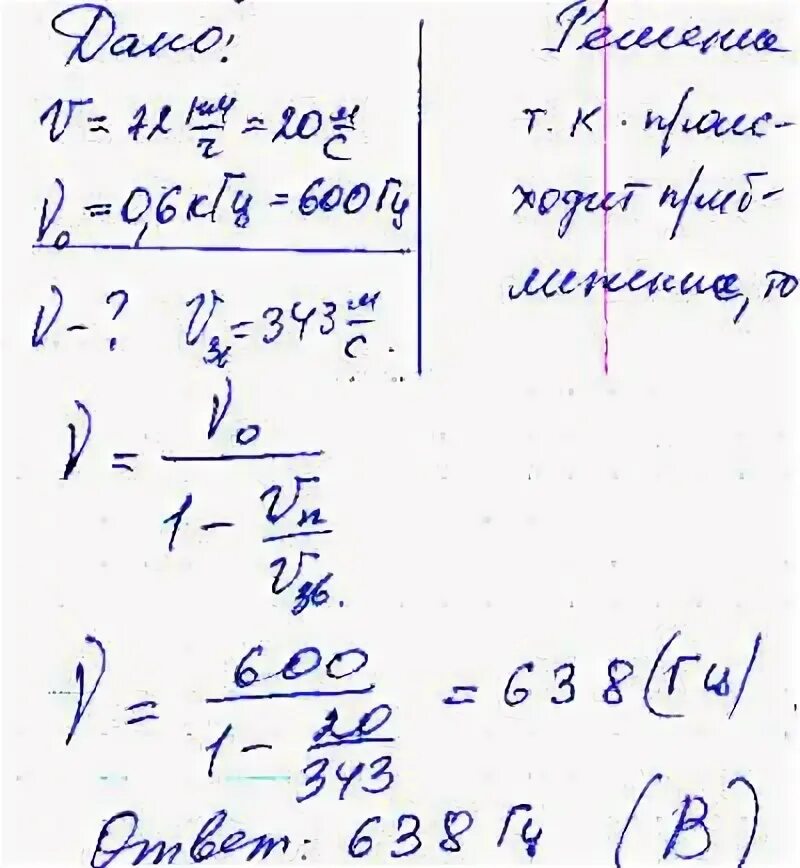 Дано:
V = 72 км/ч = 20 м/с
ν₀ = 0,6 кГц = 600 Гц
ν - ? V зв = 343 м/с.
Решение
т.к. проис-
ходит приб-
лижение, то
ν = ν₀ / (1 - Vп / Vзв.)
ν = 600 / (1 - 20/343) = 638 (Гц)
Ответ: 638 Гц (В)